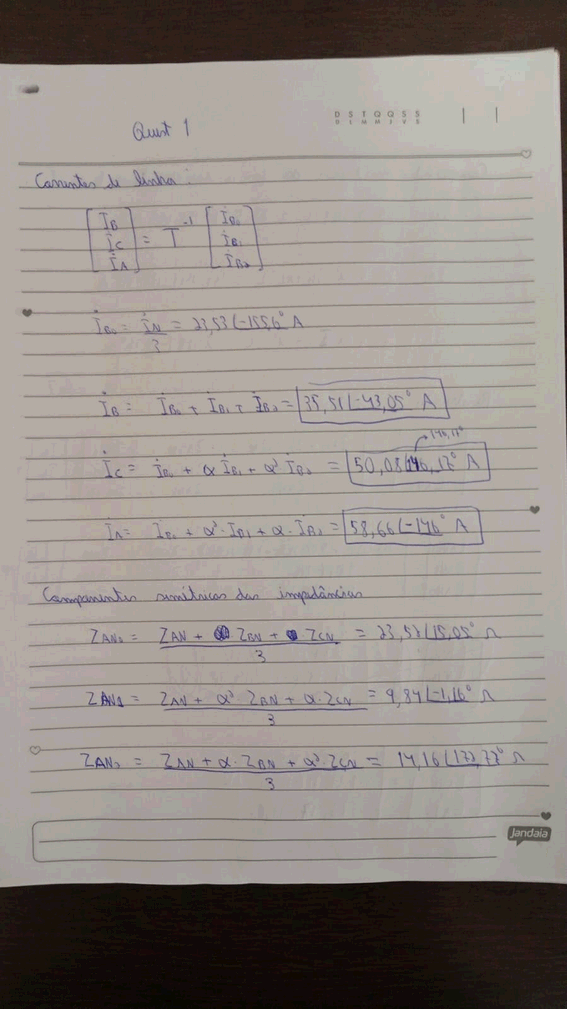 D S T Q Q S S
D L M M J V S
Quest 1
Correntes de linha:
[İB İC İA] = T⁻¹ [İB₀ İB₁ İB₂]
İB₀ = İN/3 = 23,53∠-155,6° A
İB = İB₀ + İB₁ + İB₂ = 35,51∠-43,05° A
146,17°
İC = İB₀ + α İB₁ + α² İB₂ = 50,08∠146,17° A
İA = İB₀ + α²·İB₁ + α·İB₂ = 58,66∠-146° A
Componentes simétricas das impedâncias
ZAN₀ = ZAN + ZBN + ZCN / 3 = 23,57∠15,05° Ω
ZAN1 = ZAN + α² ZBN + α·ZCN / 3 = 9,84∠-1,16° Ω
ZAN₂ = ZAN + α·ZBN + α²·ZCN / 3 = 14,16∠172,77° Ω
Jandaia